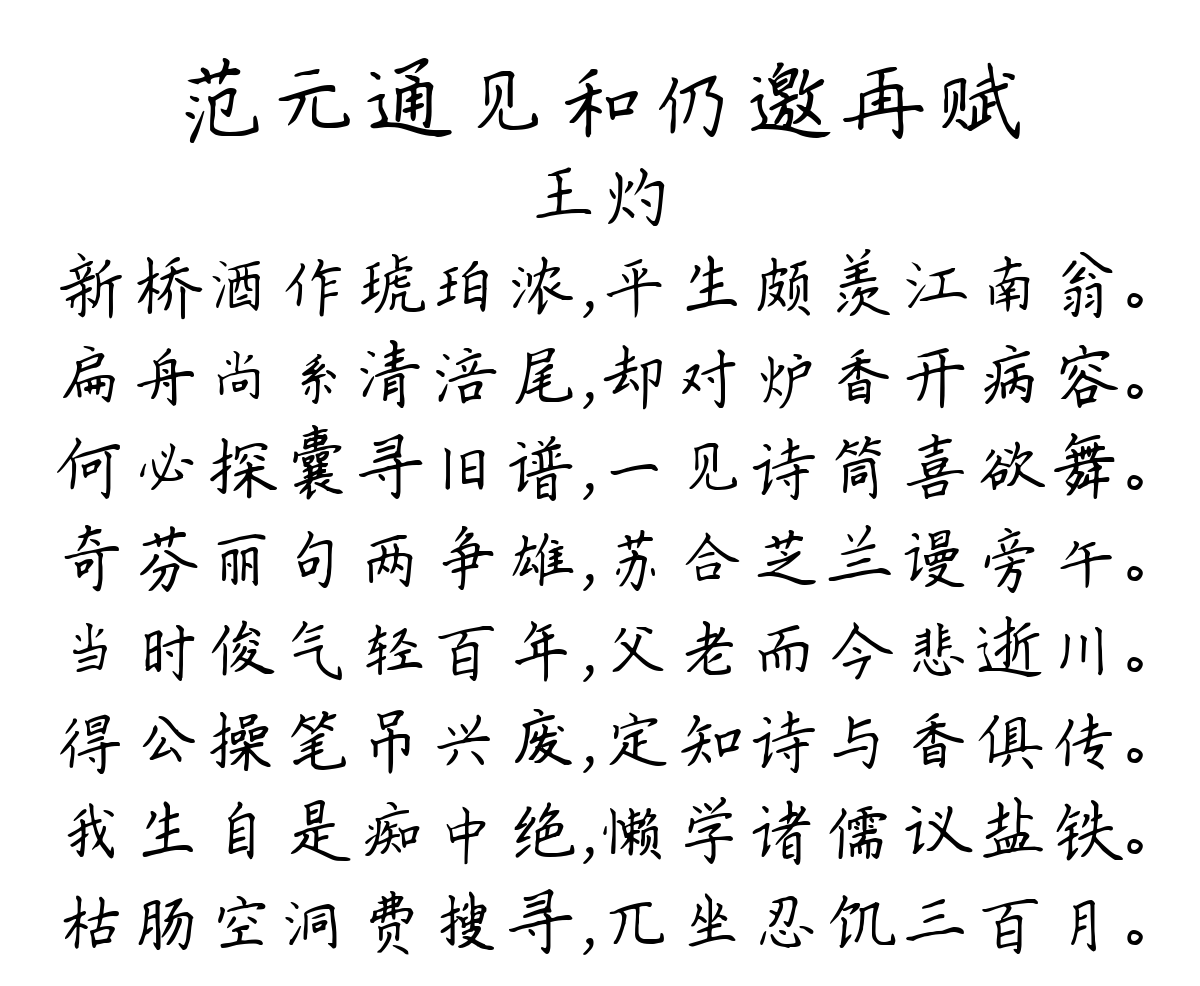 范元通见和仍邀再赋
王灼
新桥酒作琥珀浓,平生颇羡江南翁。
扁舟尚系清涪尾,却对炉香开病容。
何必探囊寻旧谱,一见诗筒喜欲舞。
奇芬丽句两争雄,苏合芝兰谩旁午。
当时俊气轻百年,父老而今悲逝川。
得公操笔吊兴废,定知诗与香俱传。
我生自是痴中绝,懒学诸儒议盐铁。
枯肠空洞费搜寻,兀坐忍饥三百月。